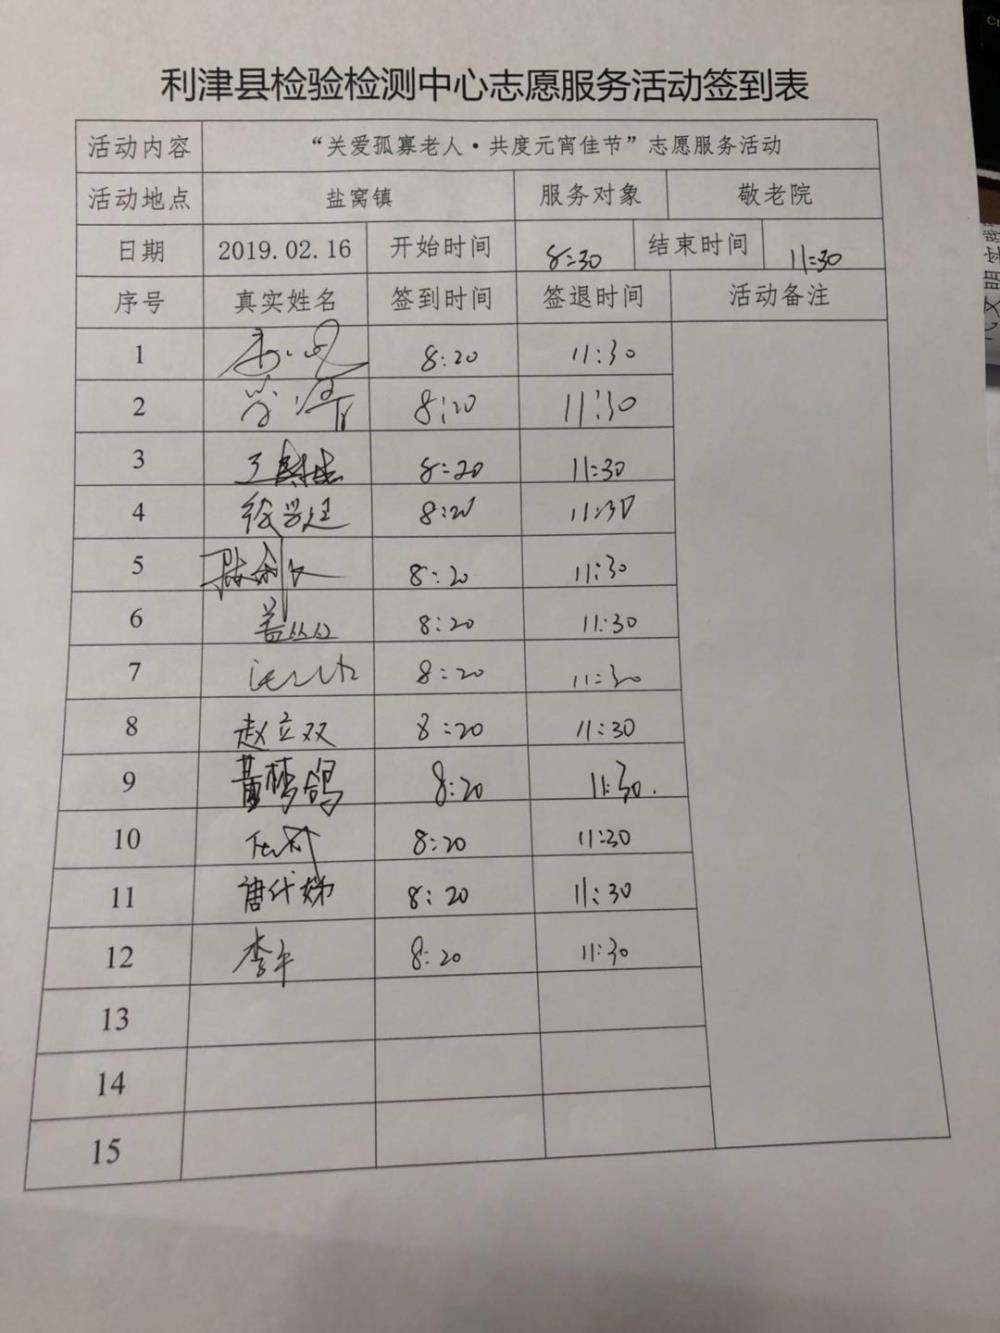 利津县检验检测中心志愿服务活动签到表
活动内容 “关爱孤寡老人·共度元宵佳节”志愿服务活动
活动地点 盐窝镇 服务对象 敬老院
日期 2019.02.16 开始时间 8:30 结束时间 11:30
序号 真实姓名 签到时间 签退时间 活动备注
1 8:20 11:30
2 8:20 11:30
3 8:20 11:30
4 8:20 11:30
5 8:20 11:30
6 8:20 11:30
7 8:20 11:30
8 赵立双 8:20 11:30
9 黄梦鸽 8:20 11:30.
10 8:20 11:30
11 唐代娣 8:20 11:30
12 李平 8:20 11:30
13
14
15